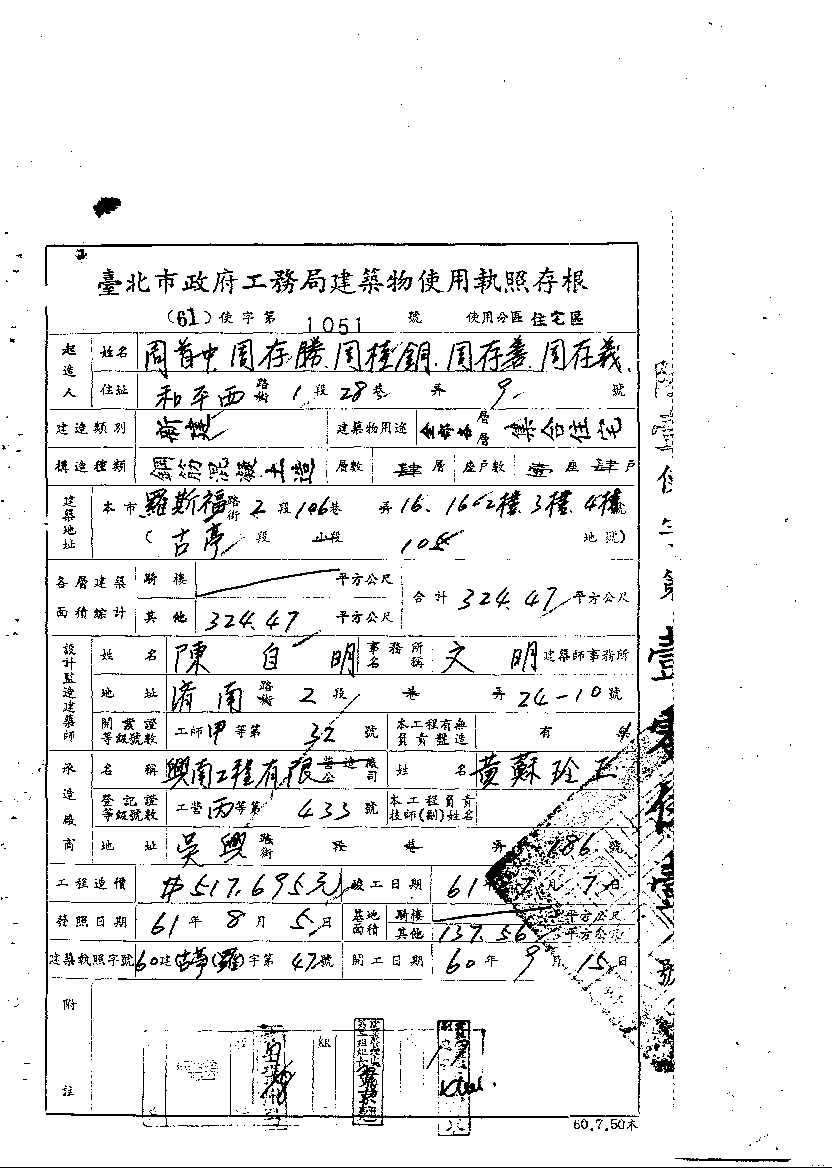 臺北市政府工務局建築物使用執照存根
(61)使字第 1051 號 使用分區 住宅區
起造人 姓名 周首中.周存勝.周桂銅.周存義
住址 和平西路街 1段 28巷 弄 9 號
建造類別 新建 建築物用途 層層 集合住宅
構造種類 鋼筋混凝土造 層數 肆層 座戶數 壹座 肆戶
建築地址 本市 羅斯福路街 2段 106巷 弄 16. 16之2樓. 3樓. 4樓號
(古亭段 小段 地號)
各層建築面積總計 騎樓 平方公尺 合計 324.47 平方公尺
其他 324.47 平方公尺
設計監造建築師 姓名 陳自明 事務所名稱 文明 建築師事務所
地址 濟南路街 2段 巷 弄 24-10號
開業證等級號數 工師甲等第 32 號 本工程有無負責監造 有 無
承造廠商 名稱 興南工程有限公司 姓名 黃蘇
登記證等級號數 工營丙等第 433 號 本工程負責技師(副)姓名
地址 吳興路街 段 巷 弄 186.號
工程造價 #517,695元 竣工日期 61年 7月 7日
發照日期 61年 8月 5日 基地面積 騎樓 平方公尺
其他 137.56 平方公尺
建築執照字號 60建古亭(羅)字第 47號 開工日期 60年 9月 15日
附註
60.7.50本